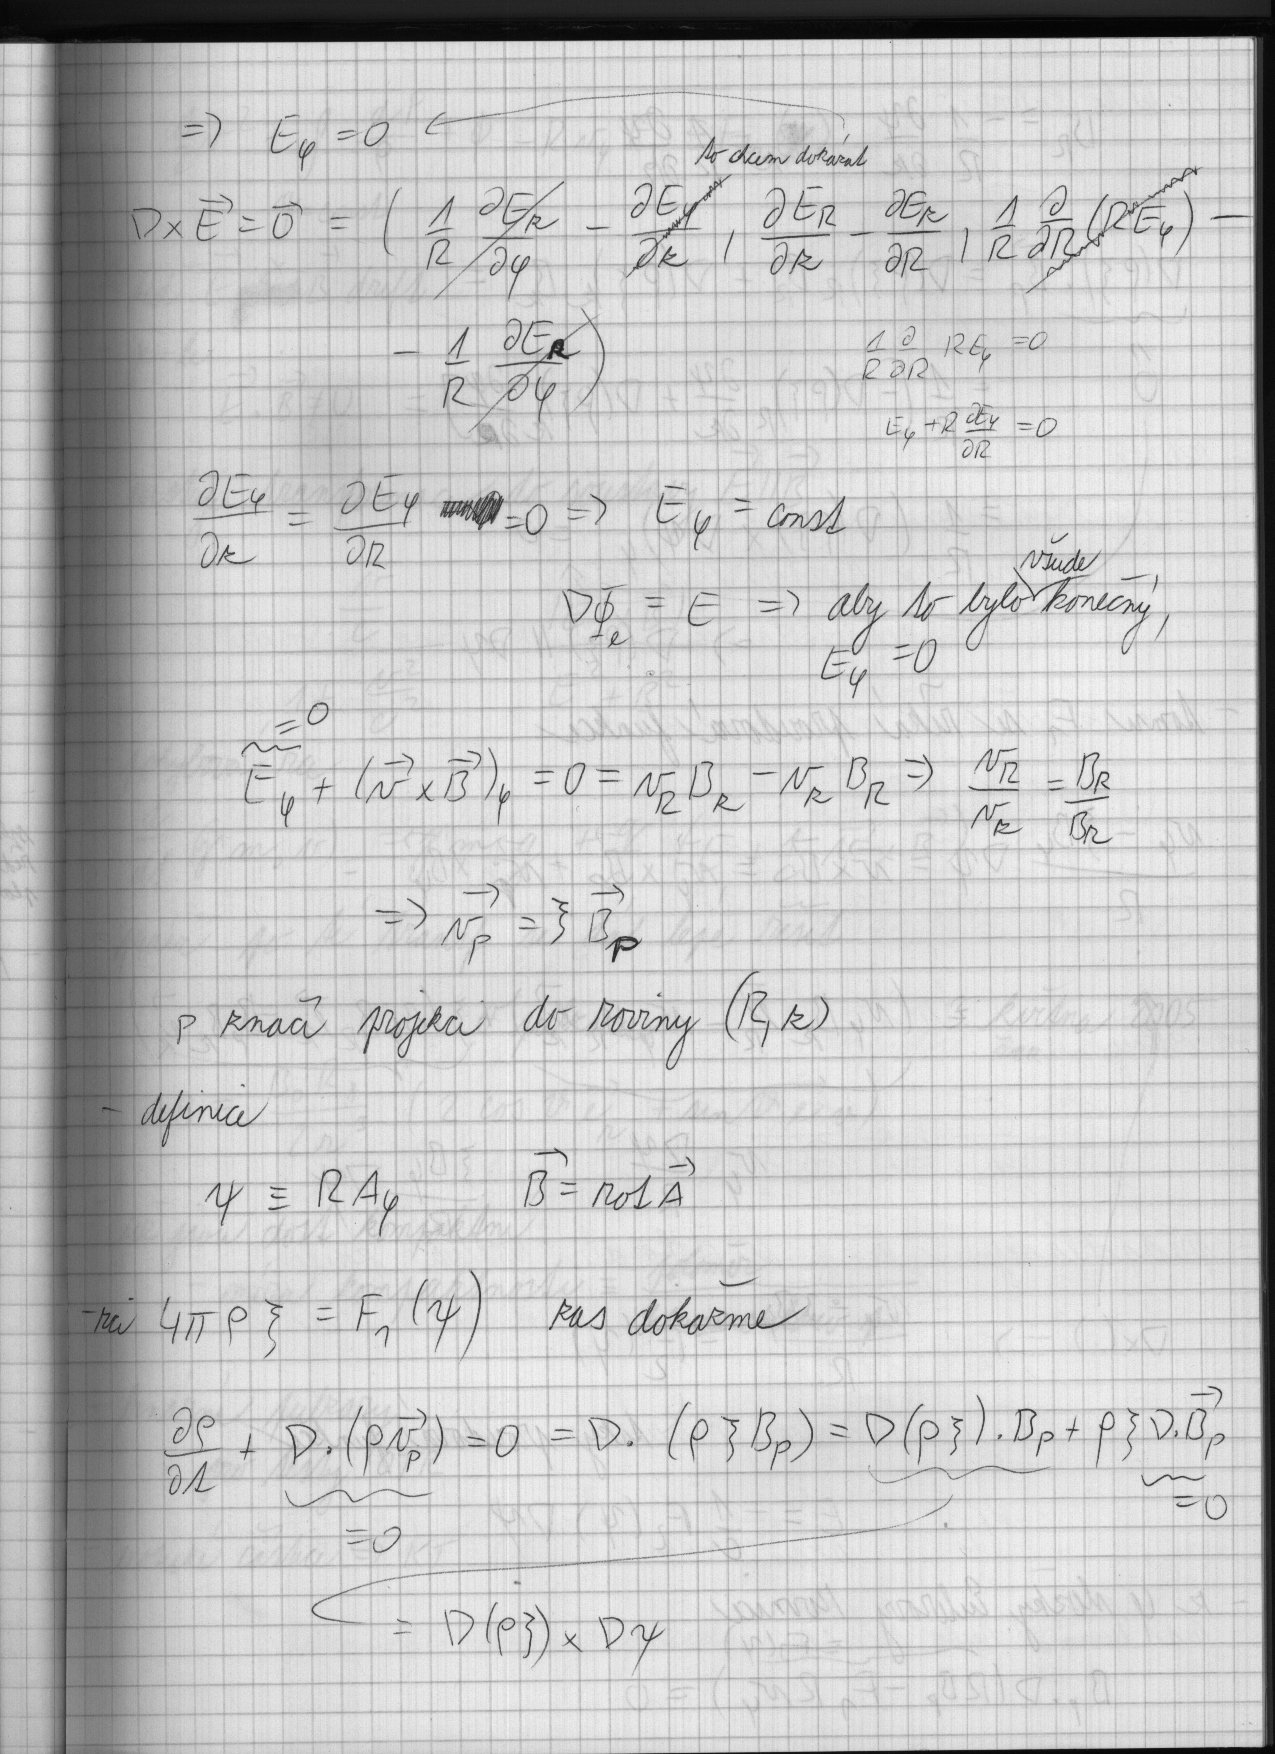 => E_φ = 0
to chcem dokázat
∇×E⃗ = 0⃗ = ( 1/R ∂E_z/∂φ − ∂E_φ/∂z , ∂E_R/∂z − ∂E_z/∂R , 1/R ∂/∂R (R E_φ) −
− 1/R ∂E_R/∂φ )
1/R ∂/∂R R E_φ = 0
E_φ + R ∂E_φ/∂R = 0
∂E_φ/∂z = ∂E_φ/∂R = 0 => E_φ = const
∇Φ_e = E => aby to bylo všude konečný,
E_φ = 0
= 0
E_φ + (v⃗ × B⃗)_φ = 0 = v_R B_z − v_z B_R => v_R/v_z = B_R/B_z
=> v⃗_p = ξ B⃗_p
p značí projekci do roviny (R, z)
- definice
ψ ≡ R A_φ B⃗ = rot A⃗
4πρξ = F_1(ψ) zas dokažme
∂ρ/∂t + ∇·(ρv⃗_p) = 0 = ∇·(ρξB_p) = ∇(ρξ)·B_p + ρξ∇·B⃗_p
= 0
= 0
= ∇(ρξ) × ∇ψ